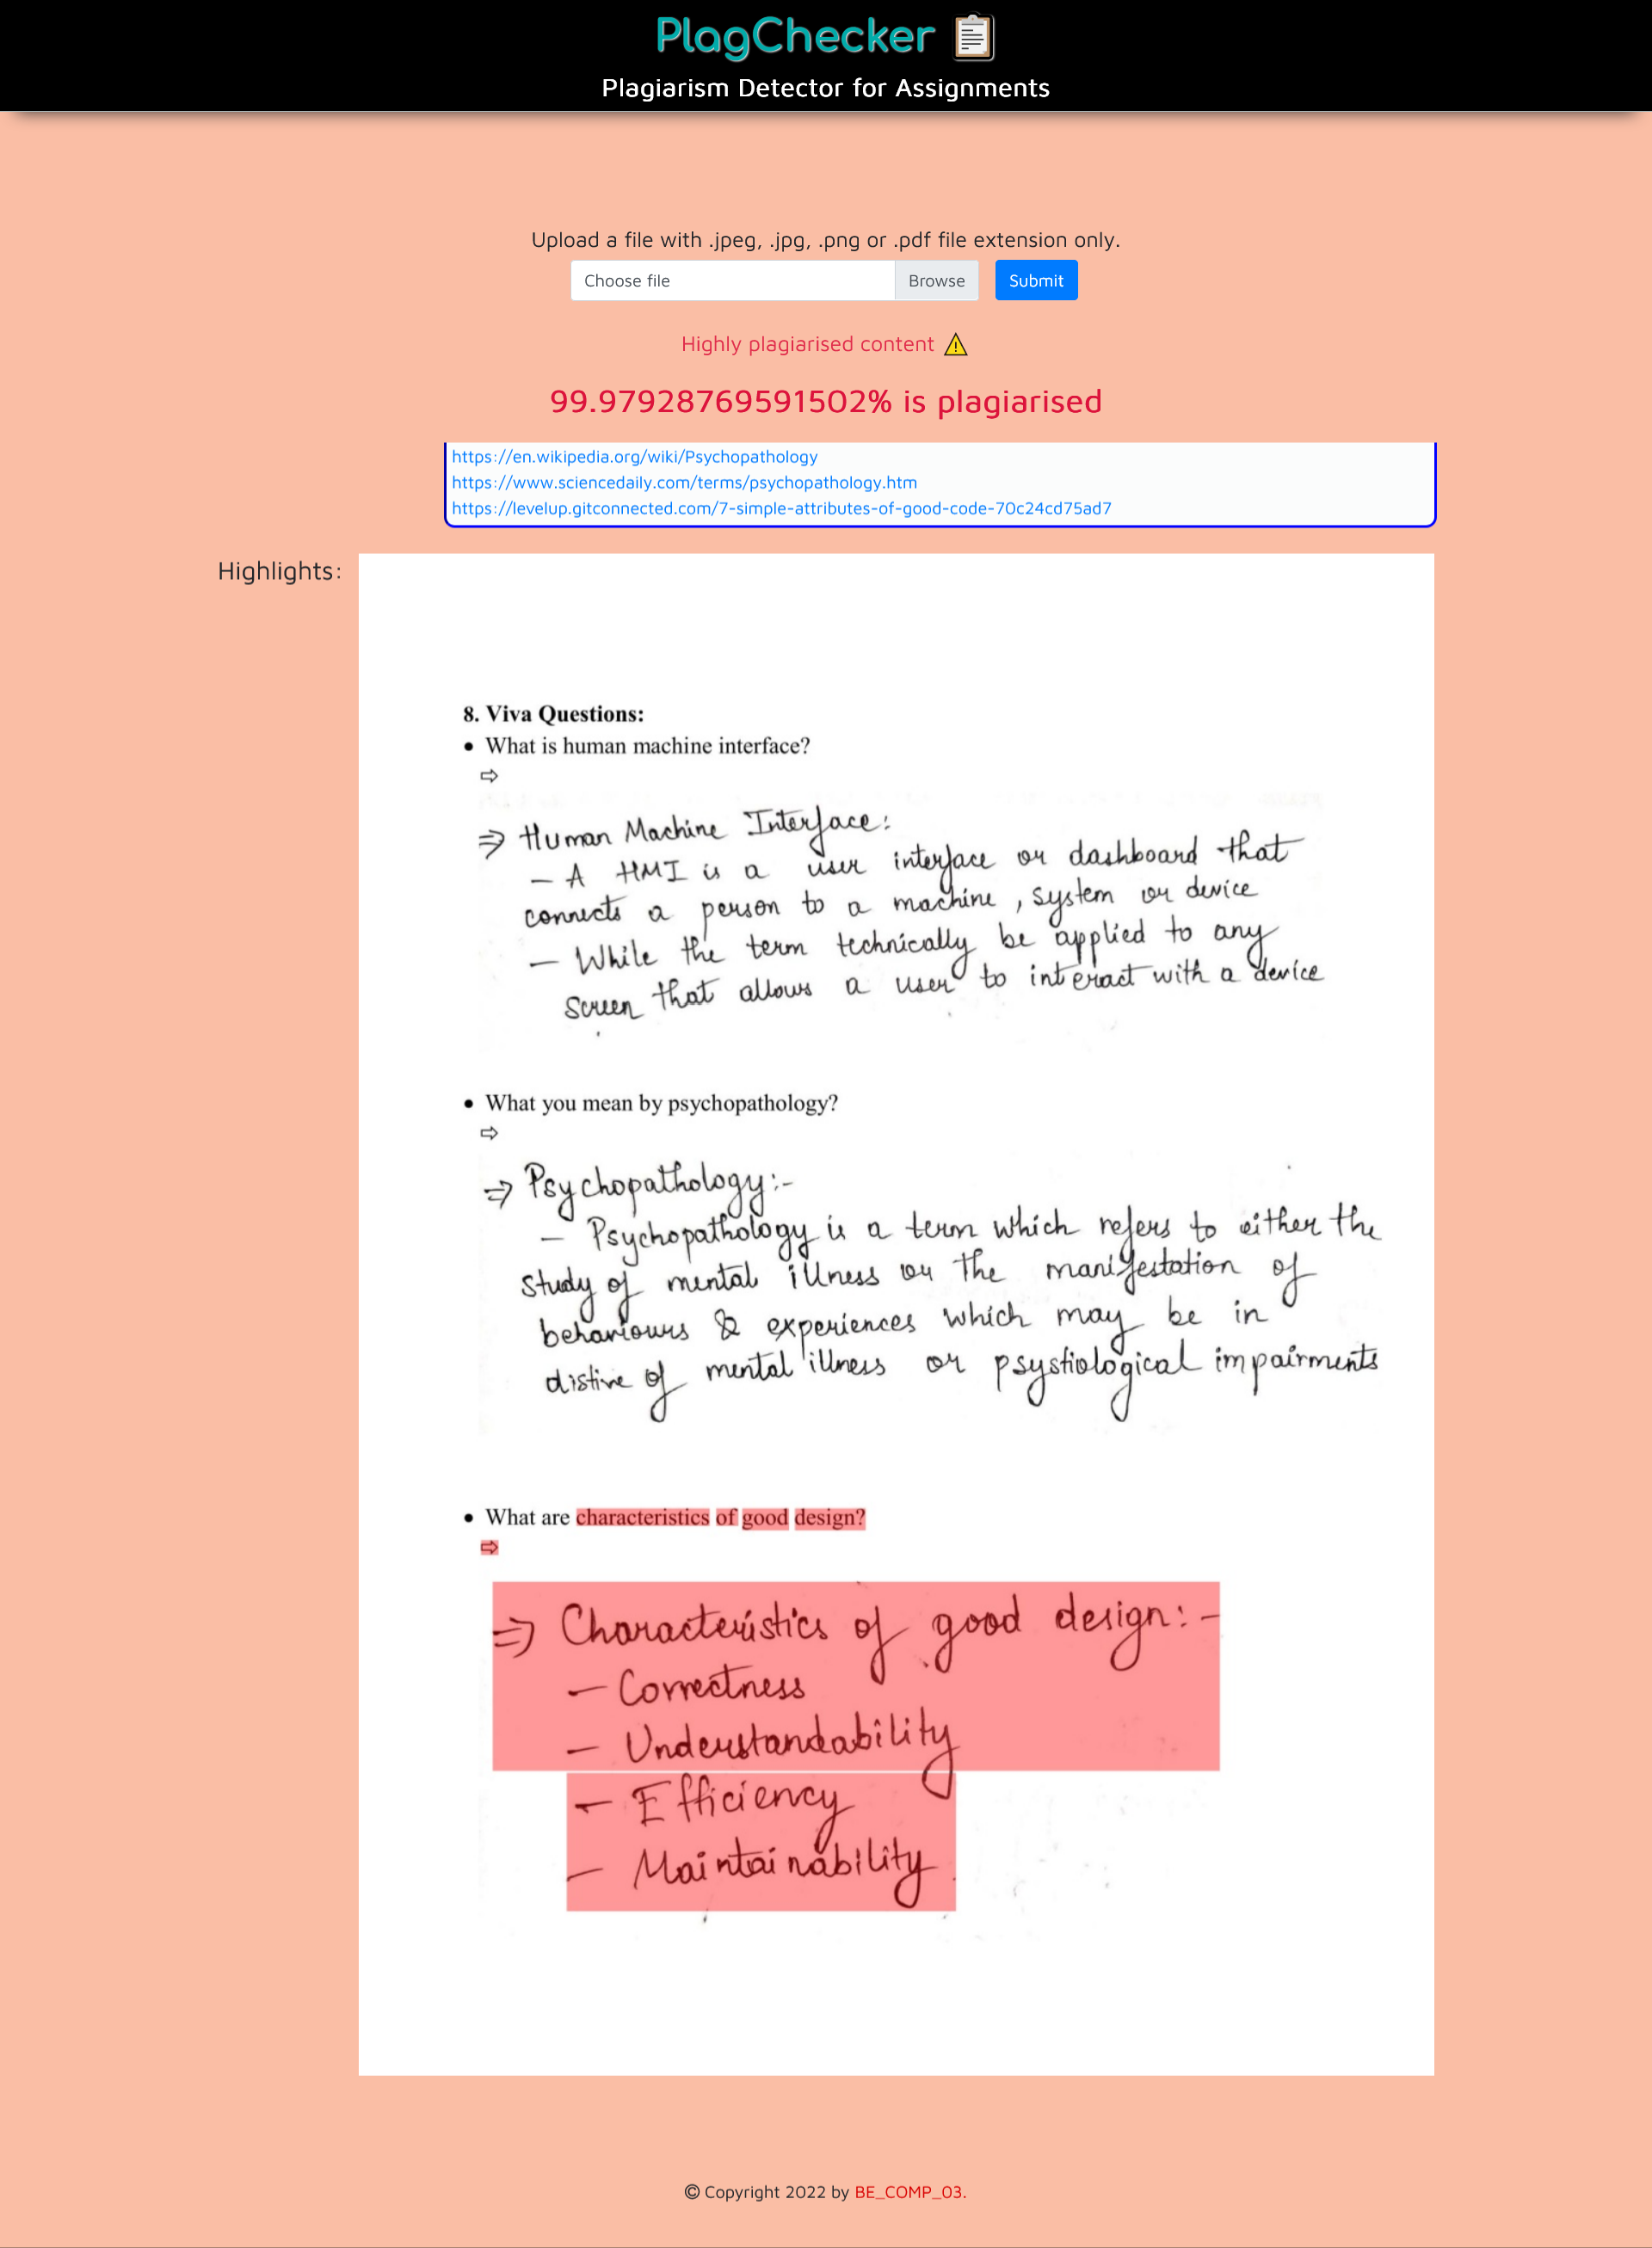 PlagChecker
Plagiarism Detector for Assignments
Upload a file with .jpeg, .jpg, .png or .pdf file extension only.
Choose file Browse Submit
Highly plagiarised content ⚠
99.97928769591502% is plagiarised
https://en.wikipedia.org/wiki/Psychopathology
https://www.sciencedaily.com/terms/psychopathology.htm
https://levelup.gitconnected.com/7-simple-attributes-of-good-code-70c24cd75ad7
Highlights:
8. Viva Questions:
• What is human machine interface?
⇨
⇒ Human Machine Interface:
– A HMI is a user interface or dashboard that
connects a person to a machine, system or device
– While the term technically be applied to any
screen that allows a user to interact with a device
• What you mean by psychopathology?
⇨
⇒ Psychopathology:-
– Psychopathology is a term which refers to either the
study of mental illness or the manifestation of
behaviours & experiences which may be in
distive of mental illness or psystiological impairments
• What are characteristics of good design?
⇨
⇒ Characteristics of good design:-
– Correctness
– Understandability
– Efficiency
– Maintainability
© Copyright 2022 by BE_COMP_03.